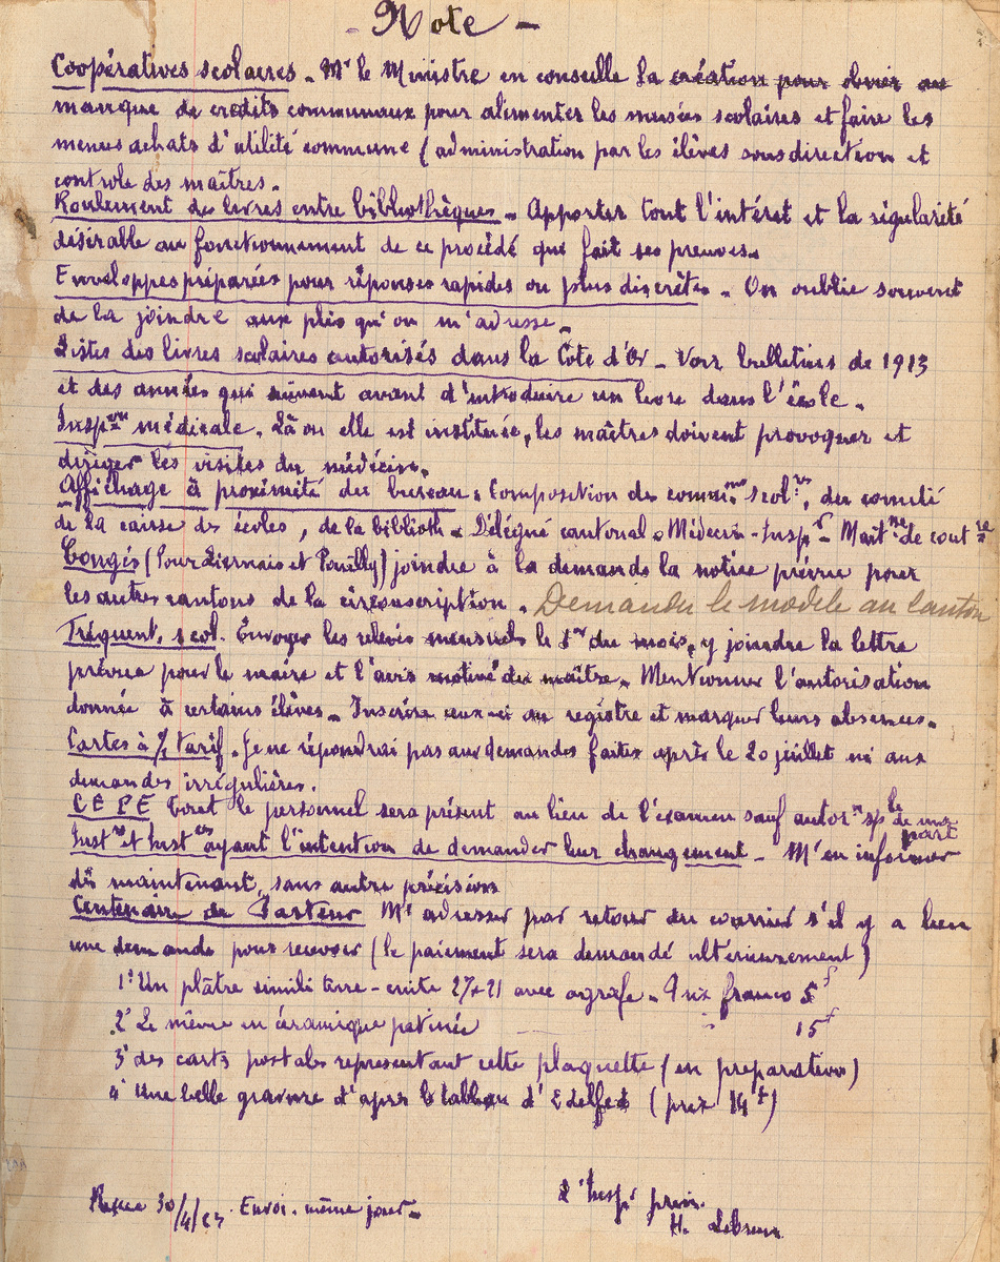 - Note -
Coopératives scolaires - Mr le Ministre en conseille la création pour obvier au
manque de crédits communaux pour alimenter les musées scolaires et faire les
menus achats d'utilité commune (administration par les élèves sous direction et
controle des maîtres.
Roulement des livres entre bibliothèques - Apporter tout l'intérêt et la régularité
désirable au fonctionnement de ce procédé qui fait ses preuves.
Enveloppes préparées pour réponses rapides ou plus discrètes - On oublie souvent
de la joindre aux plis qu'on m'adresse -
Listes des livres scolaires autorisés dans la Côte d'Or - Voir bulletins de 1913
et des années qui suivent avant d'introduire un livre dans l'école.
Inspon médicale. Là où elle est instituée, les maîtres doivent provoquer et
diriger les visites du médecin.
Affichage à proximité du bureau. Composition des comm. scol.res, du comité
de la caisse des écoles, de la biblioth - Délégué cantonal - Médecin-Inspr - Maitne de cout re
Congés (Pour Liernais et Pouilly) joindre à la demande la notice prévue pour
les autres cantons de la circonscription. Demander le modèle au canton
Fréquent. scol. Envoyer les relevés mensuels le 1er du mois, y joindre la lettre
prévue pour le maire et l'avis motivé du maître. Mentionner l'autorisation
donnée à certains élèves - Inscrire ceux-ci au registre et marquer leurs absences.
Cartes à 1/2 tarif. Je ne répondrai pas aux demandes faites après le 20 juillet ni aux
demandes irrégulières.
C E P E Tout le personnel sera présent au lieu de l'examen sauf autoron sple de ma
part
Instrs et Instces ayant l'intention de demander leur changement - M'en informer
dès maintenant, sans autre précision
Centenaire de Pasteur M' adresser par retour du courrier s'il y a lieu
une demande pour recevoir (le paiement sera demandé ultérieurement)
1° Un plâtre simili terre-cuite 27x21 avec agrafe - Prix franco 5f
2° Le même en céramique patinée 15f
3° des carts postales représentant cette plaquette (en préparation)
4° Une belle gravure d'après le tableau d'Edelfelt (prix 14f)
L'Insp. prim.
30/4/23. Envoi. même jour -
H.